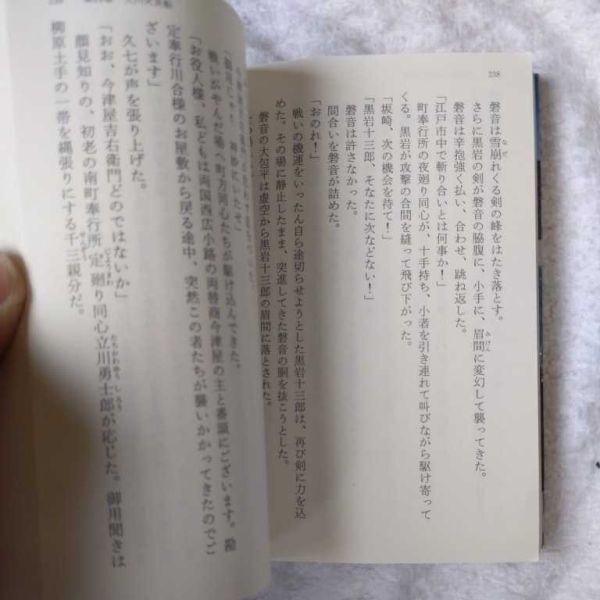 238
磐音は雪崩れくる剣の峰をはたき落とす。
さらに黒岩の剣が磐音の脇腹に、小手に、眉間に変幻して襲ってきた。
磐音は辛抱強く払い、合わせ、跳ね返した。
「江戸市中で斬り合いとは何事か!」
町奉行所の夜廻り同心が、十手持ち、小者を引き連れて叫びながら駆け寄って
くる。黒岩が攻撃の合間を縫って飛び下がった。
「坂崎、次の機会を待て!」
「黒岩十三郎、そなたに次などない!」
磐音は許さなかった。
間合いを磐音が詰めた。
「おのれ!」
戦いの機運をいったん自ら途切らせようとした黒岩十三郎は、再び剣に力を込
めた。その場に静止したまま、突進してきた磐音の胴を抜こうとした。
磐音の大包平は虚空から黒岩十三郎の眉間に落とされた。
戦いがやんだ場へ町方同心たちが駆け込んできた。
「お役人様、私どもは両国西広小路の両替商今津屋の主と番頭にございます。勘
定奉行川合様のお屋敷から戻る途中、突然この者たちが襲いかかってきたのでご
ざいます」
久七が声を張り上げた。
「おお、今津屋吉右衛門どのではないか」
顔見知りの、初老の南町奉行所定廻り同心立川勇士郎が応じた。御用聞きは
柳原土手の一帯を縄張りにする千三親分だ。